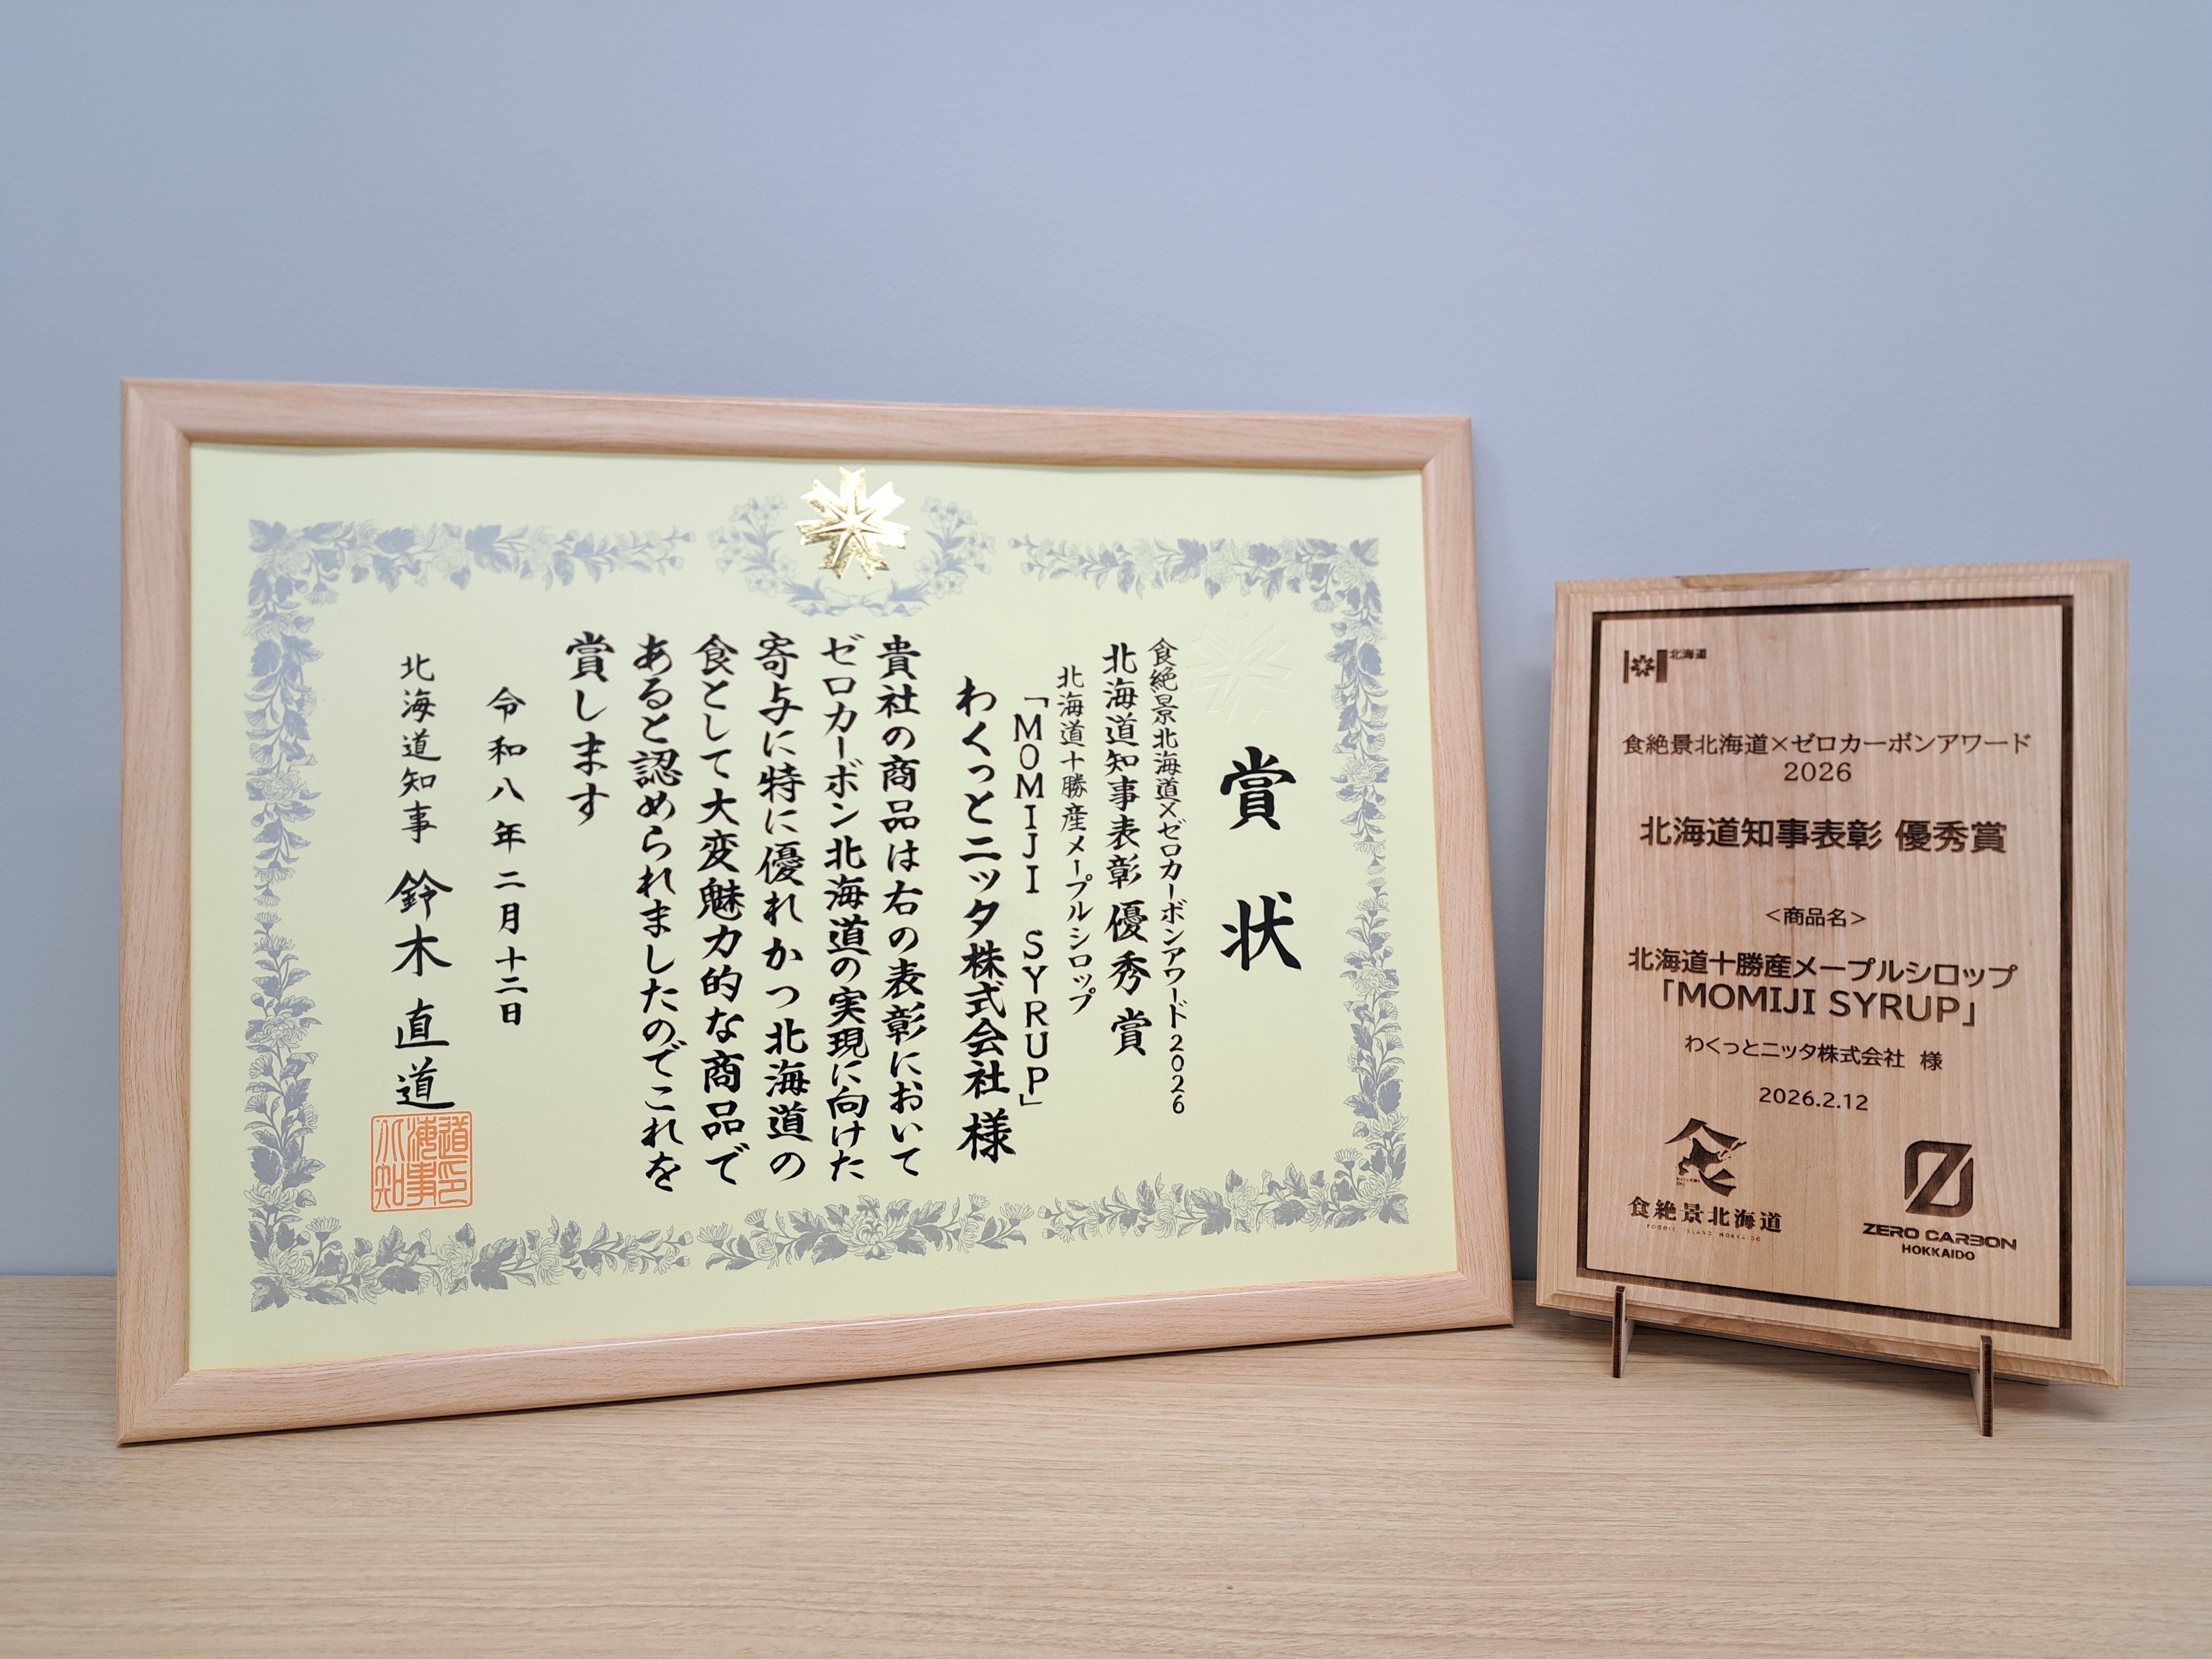 賞状
食絶景北海道×ゼロカーボンアワード2026
北海道知事表彰優秀賞
北海道十勝産メープルシロップ
「MOMIJI SYRUP」
わくっとニッタ株式会社様
貴社の商品は右の表彰において
ゼロカーボン北海道の実現に向けた
寄与に特に優れかつ北海道の
食として大変魅力的な商品で
あると認められましたのでこれを
賞します
令和八年二月十二日
北海道知事 鈴木直道
北海道
食絶景北海道×ゼロカーボンアワード
2026
北海道知事表彰 優秀賞
<商品名>
北海道十勝産メープルシロップ
「MOMIJI SYRUP」
わくっとニッタ株式会社 様
2026.2.12
食絶景北海道
FOODIE ISLAND HOKKAIDO
ZERO CARBON
HOKKAIDO